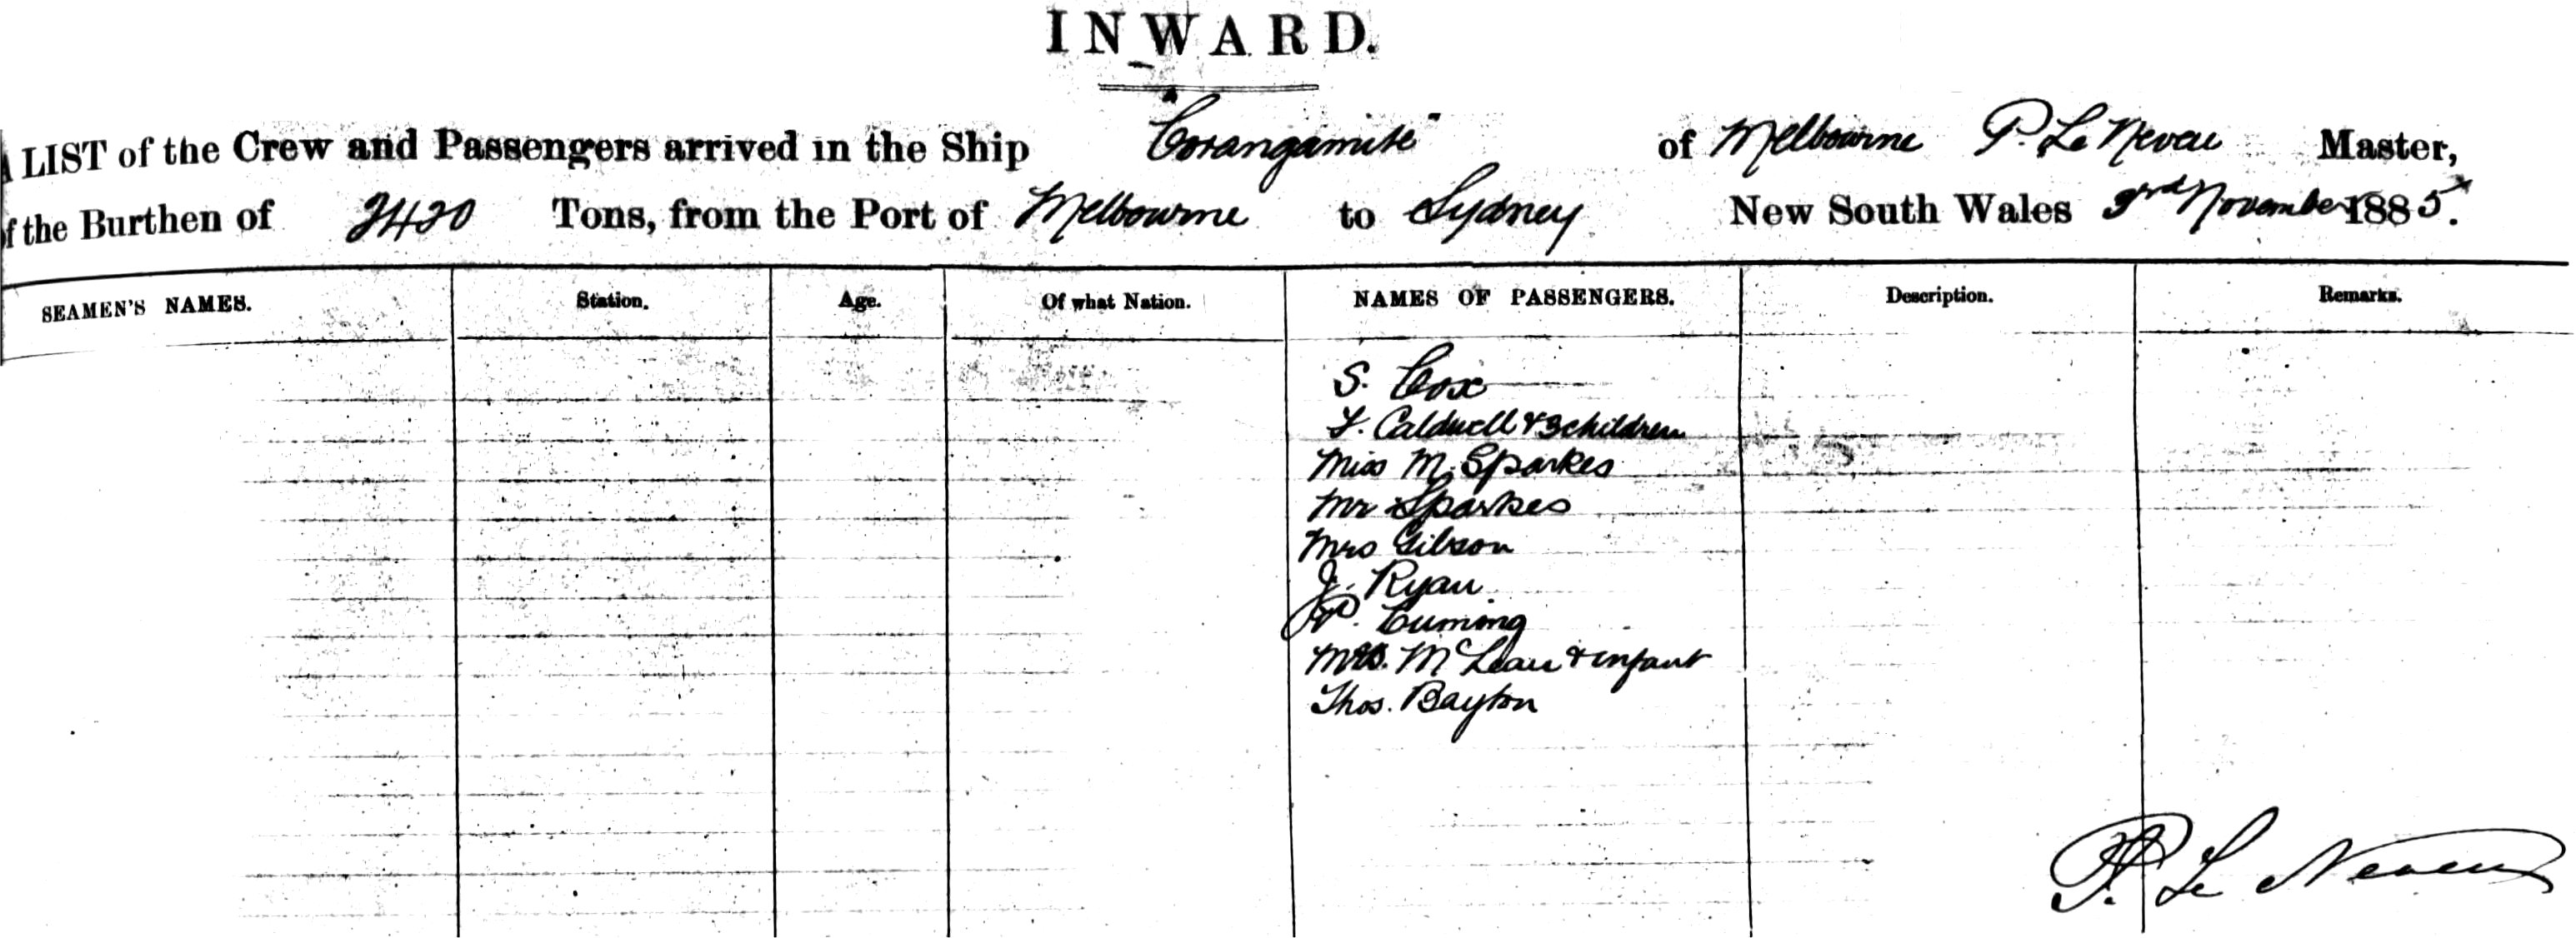 INWARD.
A LIST of the Crew and Passengers arrived in the Ship "Corangamite" of Melbourne P. Le Neveu Master,
of the Burthen of 2420 Tons, from the Port of Melbourne to Sydney New South Wales 3rd November 1885.
SEAMEN'S NAMES. Station. Age. Of what Nation. NAMES OF PASSENGERS. Description. Remarks.
S. Cox
Caldwell & 3 children
Miss M. Sparkes
Mr Sparkes
Mrs Gibson
J. Ryan
P. Cuming
Mrs. McLean & infant
Thos. Bayton
P. Le Neveu